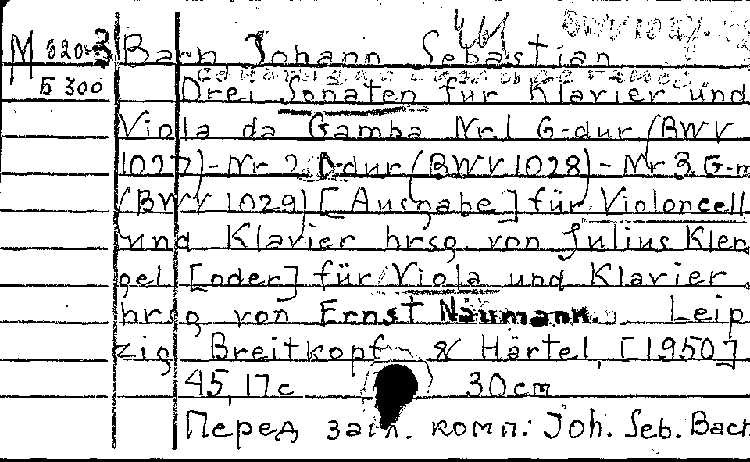 М 620-3 Bach Johann Sebastian
Б 300 Drei Sonaten für Klavier und
Viola da Gamba Nr.1 G-dur (BWV
1027)-Nr 2 D-dur (BWV 1028)-Nr 3 G-m
(BWV 1029) [Ausgabe] für Violoncell
und Klavier hrsg. von Julius Klen
gel [oder] für Viola und Klavier
hrsg von Ernst Naumann. Leip
zig Breitkopf & Härtel, [1950]
45, 17 с 30 cm
Перед загл. комп.: Joh. Seb. Bach